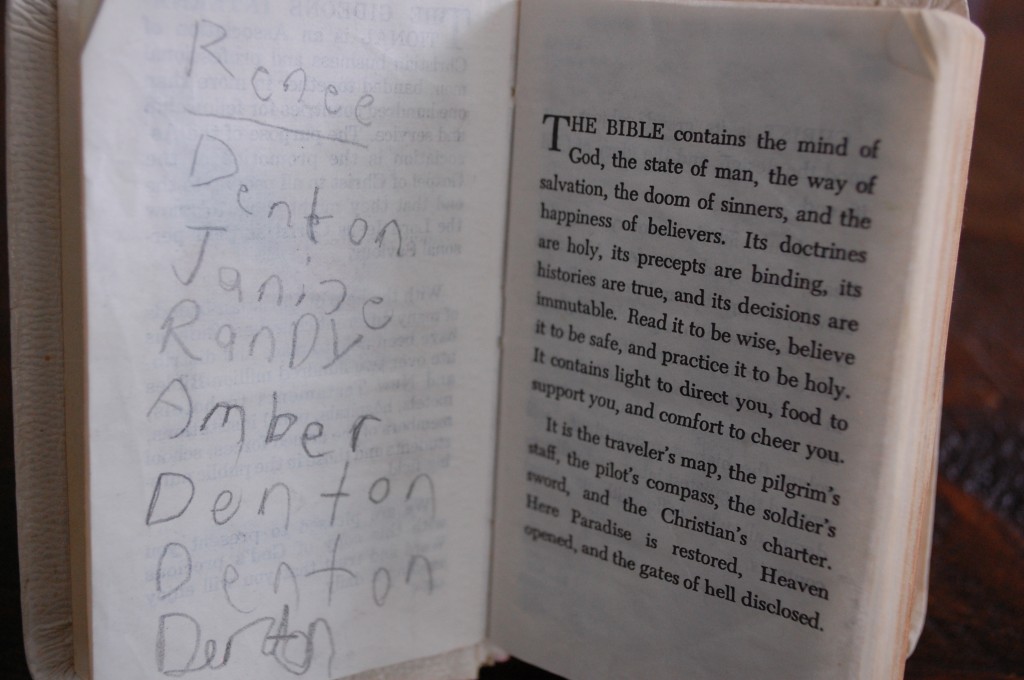 Renee
Denton
Janice
RanDy
Amber
Denton
Denton
Denton
THE BIBLE contains the mind of
God, the state of man, the way of
salvation, the doom of sinners, and the
happiness of believers. Its doctrines
are holy, its precepts are binding, its
histories are true, and its decisions are
immutable. Read it to be wise, believe
it to be safe, and practice it to be holy.
It contains light to direct you, food to
support you, and comfort to cheer you.
It is the traveler's map, the pilgrim's
staff, the pilot's compass, the soldier's
sword, and the Christian's charter.
Here Paradise is restored, Heaven
opened, and the gates of hell disclosed.